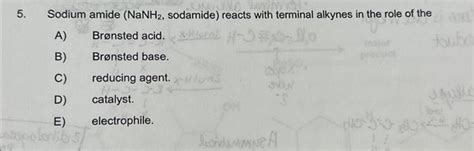 5. Sodium amide (NaNH₂, sodamide) reacts with terminal alkynes in the role of the
A) Brønsted acid.
B) Brønsted base.
C) reducing agent.
D) catalyst.
E) electrophile.